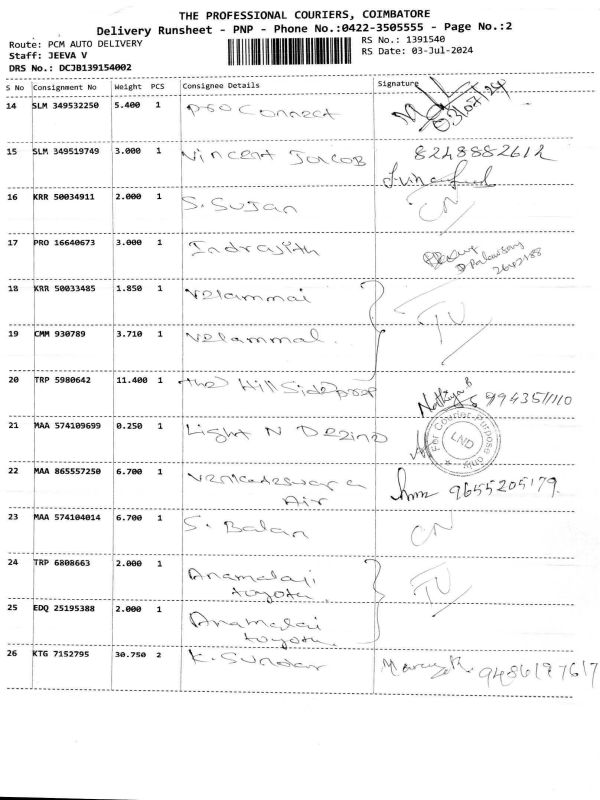 THE PROFESSIONAL COURIERS, COIMBATORE
Delivery Runsheet - PNP - Phone No.:0422-3505555 - Page No.:2
Route: PCM AUTO DELIVERY
Staff: JEEVA V
DRS No.: DCJB139154002
RS No.: 1391540
RS Date: 03-Jul-2024
S No Consignment No Weight PCS Consignee Details Signature
14 SLM 349532250 5.400 1 Connect 03/07/24
15 SLM 349519749 3.000 1 Vincent Jacob 8248882612
16 KRR 50034911 2.000 1 S. Sujan CN
17 PRO 16640673 3.000 1 Indrajith
18 KRR 50033485 1.850 1 Velammal
19 CMM 930789 3.710 1 Velammal. TU
20 TRP 5980642 11.400 1 the Hillside
21 MAA 574109699 0.250 1 Light N Dezine For Courier Purpose Only LND
22 MAA 865557250 6.700 1 Venkateswara 9655205179.
Air
23 MAA 574104014 6.700 1 S. Balan CN
24 TRP 6808663 2.000 1 Anamalai
toyota. TU
25 EDQ 25195388 2.000 1 Anamalai
toyota.
26 KTG 7152795 30.750 2 K. Sundar 9486197617